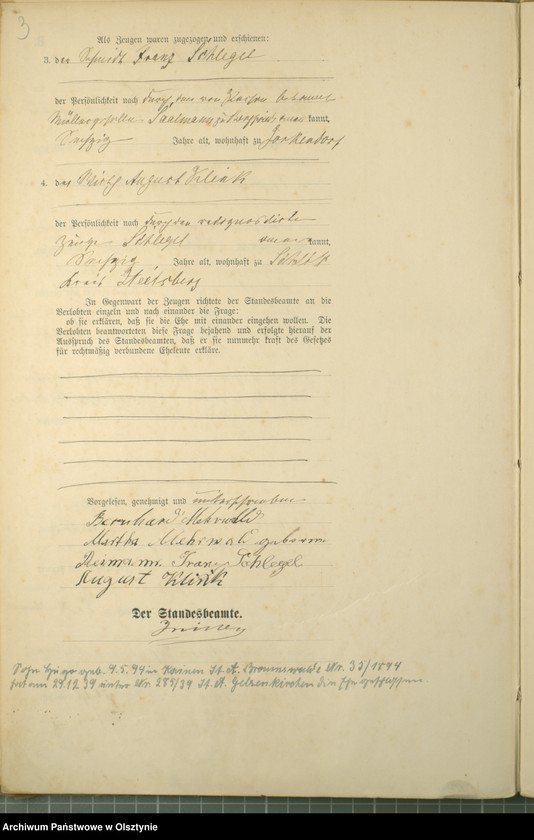 3
Als Zeugen waren zugezogen und erschienen:
3. der Schmidt Franz Schlegel
der Persönlichkeit nach durch den von Person bekannten
Müllergesellen Saalmann zu kannt,
Jahre alt, wohnhaft zu
4. der Wirth August Klink
der Persönlichkeit nach durch den rekognoszirten
Zeugen Schlegel kannt,
Jahre alt, wohnhaft zu
Kreis Heilsberg
In Gegenwart der Zeugen richtete der Standesbeamte an die
Verlobten einzeln und nach einander die Frage:
ob sie erklären, daß sie die Ehe mit einander eingehen wollen. Die
Verlobten beantworteten diese Frage bejahend und erfolgte hierauf der
Ausspruch des Standesbeamten, daß er sie nunmehr kraft des Gesetzes
für rechtmäßig verbundene Eheleute erkläre.
Vorgelesen, genehmigt und unterschrieben
Bernhard Mehrwald
Martha Mehrwald geborene
Reimann. Franz Schlegel
August Klink
Der Standesbeamte.
Sohn Hugo geb. 9.5.94 in St. A. Braunswalde Nr. 33/1894
hat am 29.12.39 unter Nr. 285/39 St. A. Gelsenkirchen die Ehe geschlossen
Archiwum Państwowe w Olsztynie